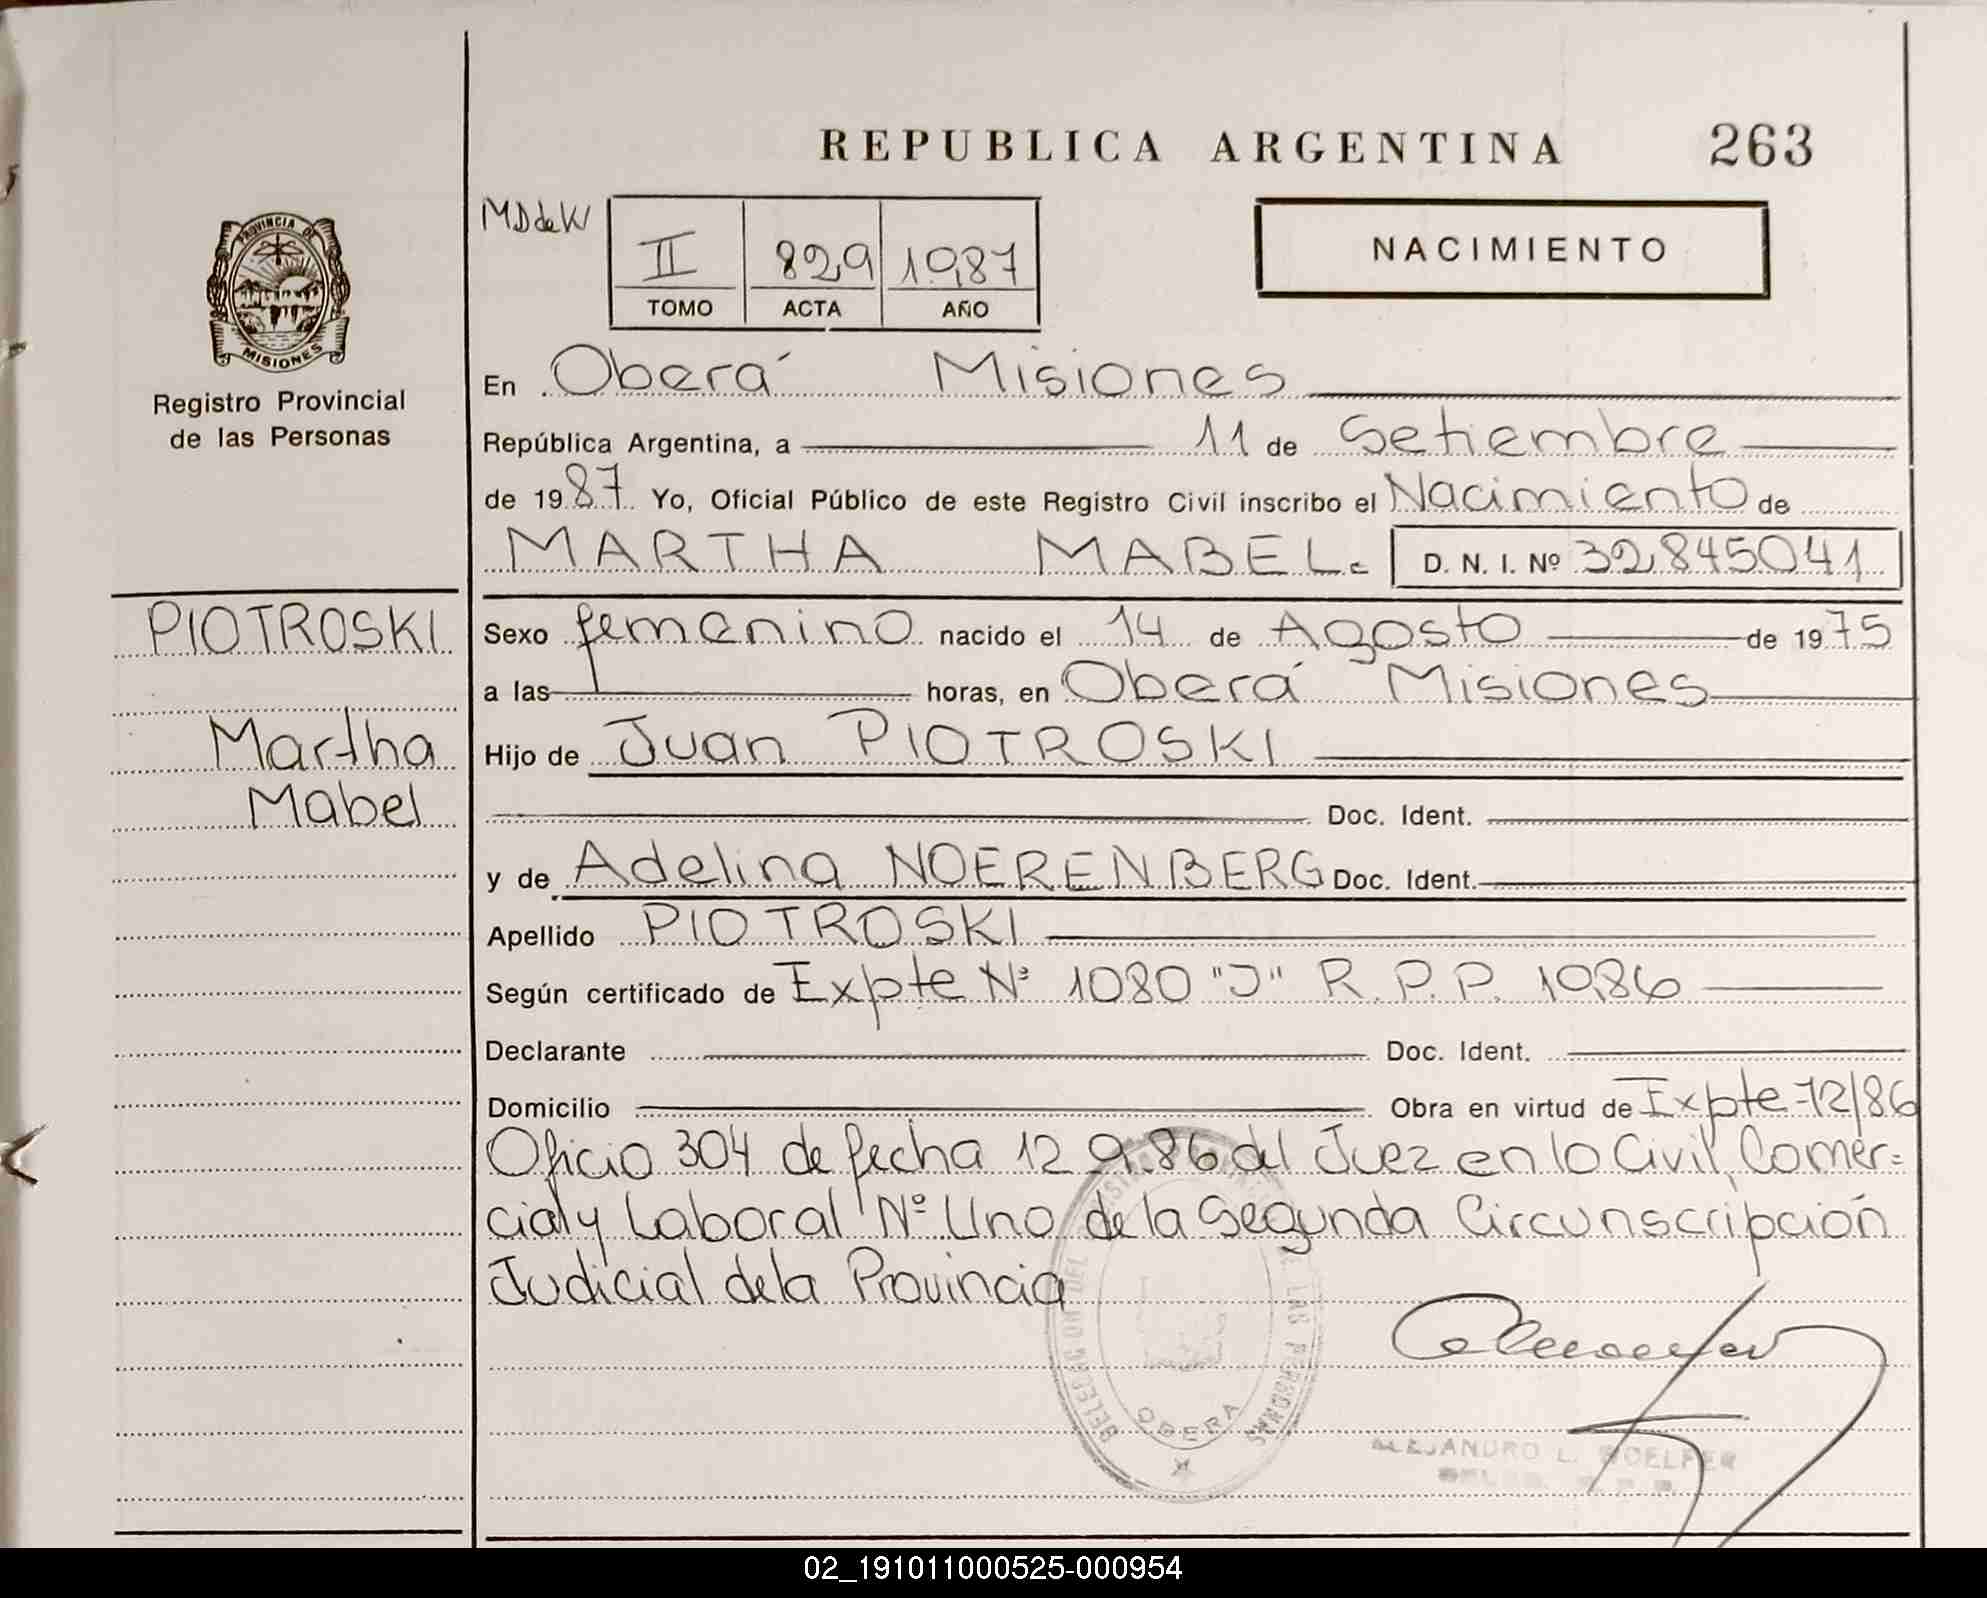 REPUBLICA ARGENTINA 263
MD de K
II 829 1987
TOMO ACTA AÑO
NACIMIENTO
PROVINCIA DE
MISIONES
Registro Provincial
de las Personas
En Oberá Misiones
República Argentina, a 11 de Setiembre
de 1987. Yo, Oficial Público de este Registro Civil inscribo el Nacimiento de
MARTHA MABEL.- D. N. I. Nº 32.845041
PIOTROSKI
Martha
Mabel
Sexo femenino nacido el 14 de Agosto de 1975
a las horas, en Oberá Misiones
Hijo de Juan PIOTROSKI
Doc. Ident.
y de Adelina NOERENBERG Doc. Ident.
Apellido PIOTROSKI
Según certificado de Expte Nº 1080 "J" R.P.P. 1986
Declarante Doc. Ident.
Domicilio Obra en virtud de Expte 72/86
Oficio 304 de fecha 12.9.86 del Juez en lo Civil, Comer=
cial y Laboral Nº Uno de la Segunda Circunscripción
Judicial de la Provincia
LAS PERSONAS
OBERA
ALEJANDRO L.
02_191011000525-000954